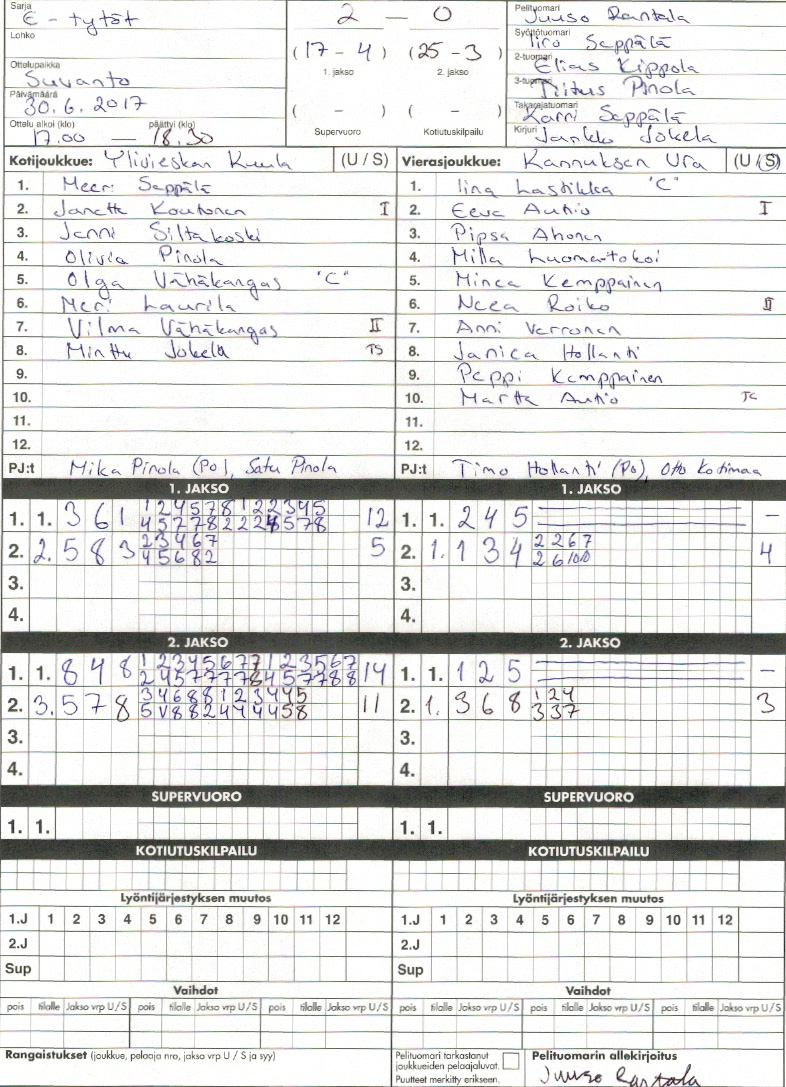 Sarja
E - tytöt
Lohko
Ottelupaikka
Suvanto
Päivämäärä
30.6.2017
Ottelu alkoi (klo) päättyi (klo)
17.00 — 18.30
2 — 0
(17 - 4) (25 - 3)
1. jakso 2. jakso
( - ) ( - )
Supervuoro Kotiutuskilpailu
Pelituomari
Juuso Rantala
Syöttötuomari
Iiro Seppälä
2-tuomari
Elias Kippola
3-tuomari
Tiitus Pinola
Takarajatuomari
Karri Seppälä
Kirjuri
Jarkko Jokela
Kotijoukkue: Ylivieskan Kuula (U / S)
1. Meeri Seppälä
2. Janette Koutonen I
3. Jenni Siltakoski
4. Olivia Pinola
5. Olga Vähäkangas "C"
6. Meri Laurila
7. Vilma Vähäkangas II
8. Minttu Jokela TS
9.
10.
11.
12.
PJ:t Mika Pinola (Po), Satu Pinola
Vierasjoukkue: Kannuksen Ura (U / S)
1. Iina Lastikka "C"
2. Eeva Autio I
3. Pipsa Ahonen
4. Milla Luomartokoi
5. Minea Kemppainen
6. Neea Roiko II
7. Anni Verronen
8. Janica Hollanti
9. Peppi Kemppainen
10. Martta Autio
11.
12.
PJ:t Timo Hollanti (Po), Otto Kotimaa
1. JAKSO
1. 1. 3 6 1 1 2 4 5 7 8 1 2 2 3 4 5 12
4 5 7 7 8 2 2 2 4 5 7 8
2. 2. 5 8 3 2 3 4 6 7 5
4 5 6 8 2
3.
4.
1. JAKSO
1. 1. 2 4 5 -
2. 1. 1 3 4 2 2 6 7 4
2 6 10 10
3.
4.
2. JAKSO
1. 1. 8 4 8 1 2 3 4 5 6 7 7 1 2 3 5 6 7 14
2 4 5 7 7 7 7 8 4 5 7 7 8 8
2. 3. 5 7 8 3 4 6 8 8 1 2 3 4 4 5 11
5 V 8 8 2 4 4 4 4 5 8
3.
4.
2. JAKSO
1. 1. 1 2 5 -
2. 1. 3 6 8 1 2 4 3
3 3 7
3.
4.
SUPERVUORO
1. 1.
SUPERVUORO
1. 1.
KOTIUTUSKILPAILU
KOTIUTUSKILPAILU
Lyöntijärjestyksen muutos
1.J 1 2 3 4 5 6 7 8 9 10 11 12
2.J
Sup
Lyöntijärjestyksen muutos
1.J 1 2 3 4 5 6 7 8 9 10 11 12
2.J
Sup
Vaihdot
pois tilalle Jakso vrp U/S pois tilalle Jakso vrp U/S pois tilalle Jakso vrp U/S
Vaihdot
pois tilalle Jakso vrp U/S pois tilalle Jakso vrp U/S pois tilalle Jakso vrp U/S
Rangaistukset (joukkue, pelaaja nro, jakso vrp U / S ja syy)
Pelituomari tarkastanut
joukkueiden pelaajaluvat.
Puutteet merkitty erikseen.
Pelituomarin allekirjoitus
Juuso Rantala